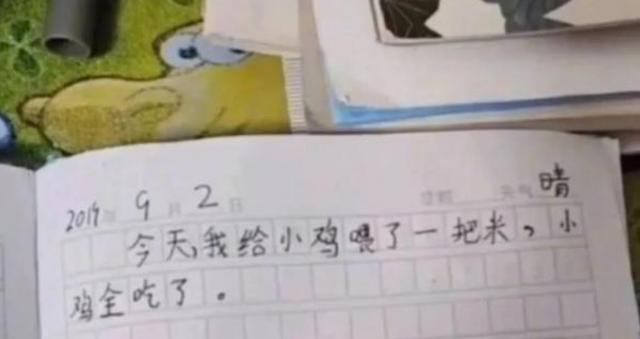 2019年 9月 2日 天气 晴
今天,我给小鸡喂了一把米,小
鸡全吃了。